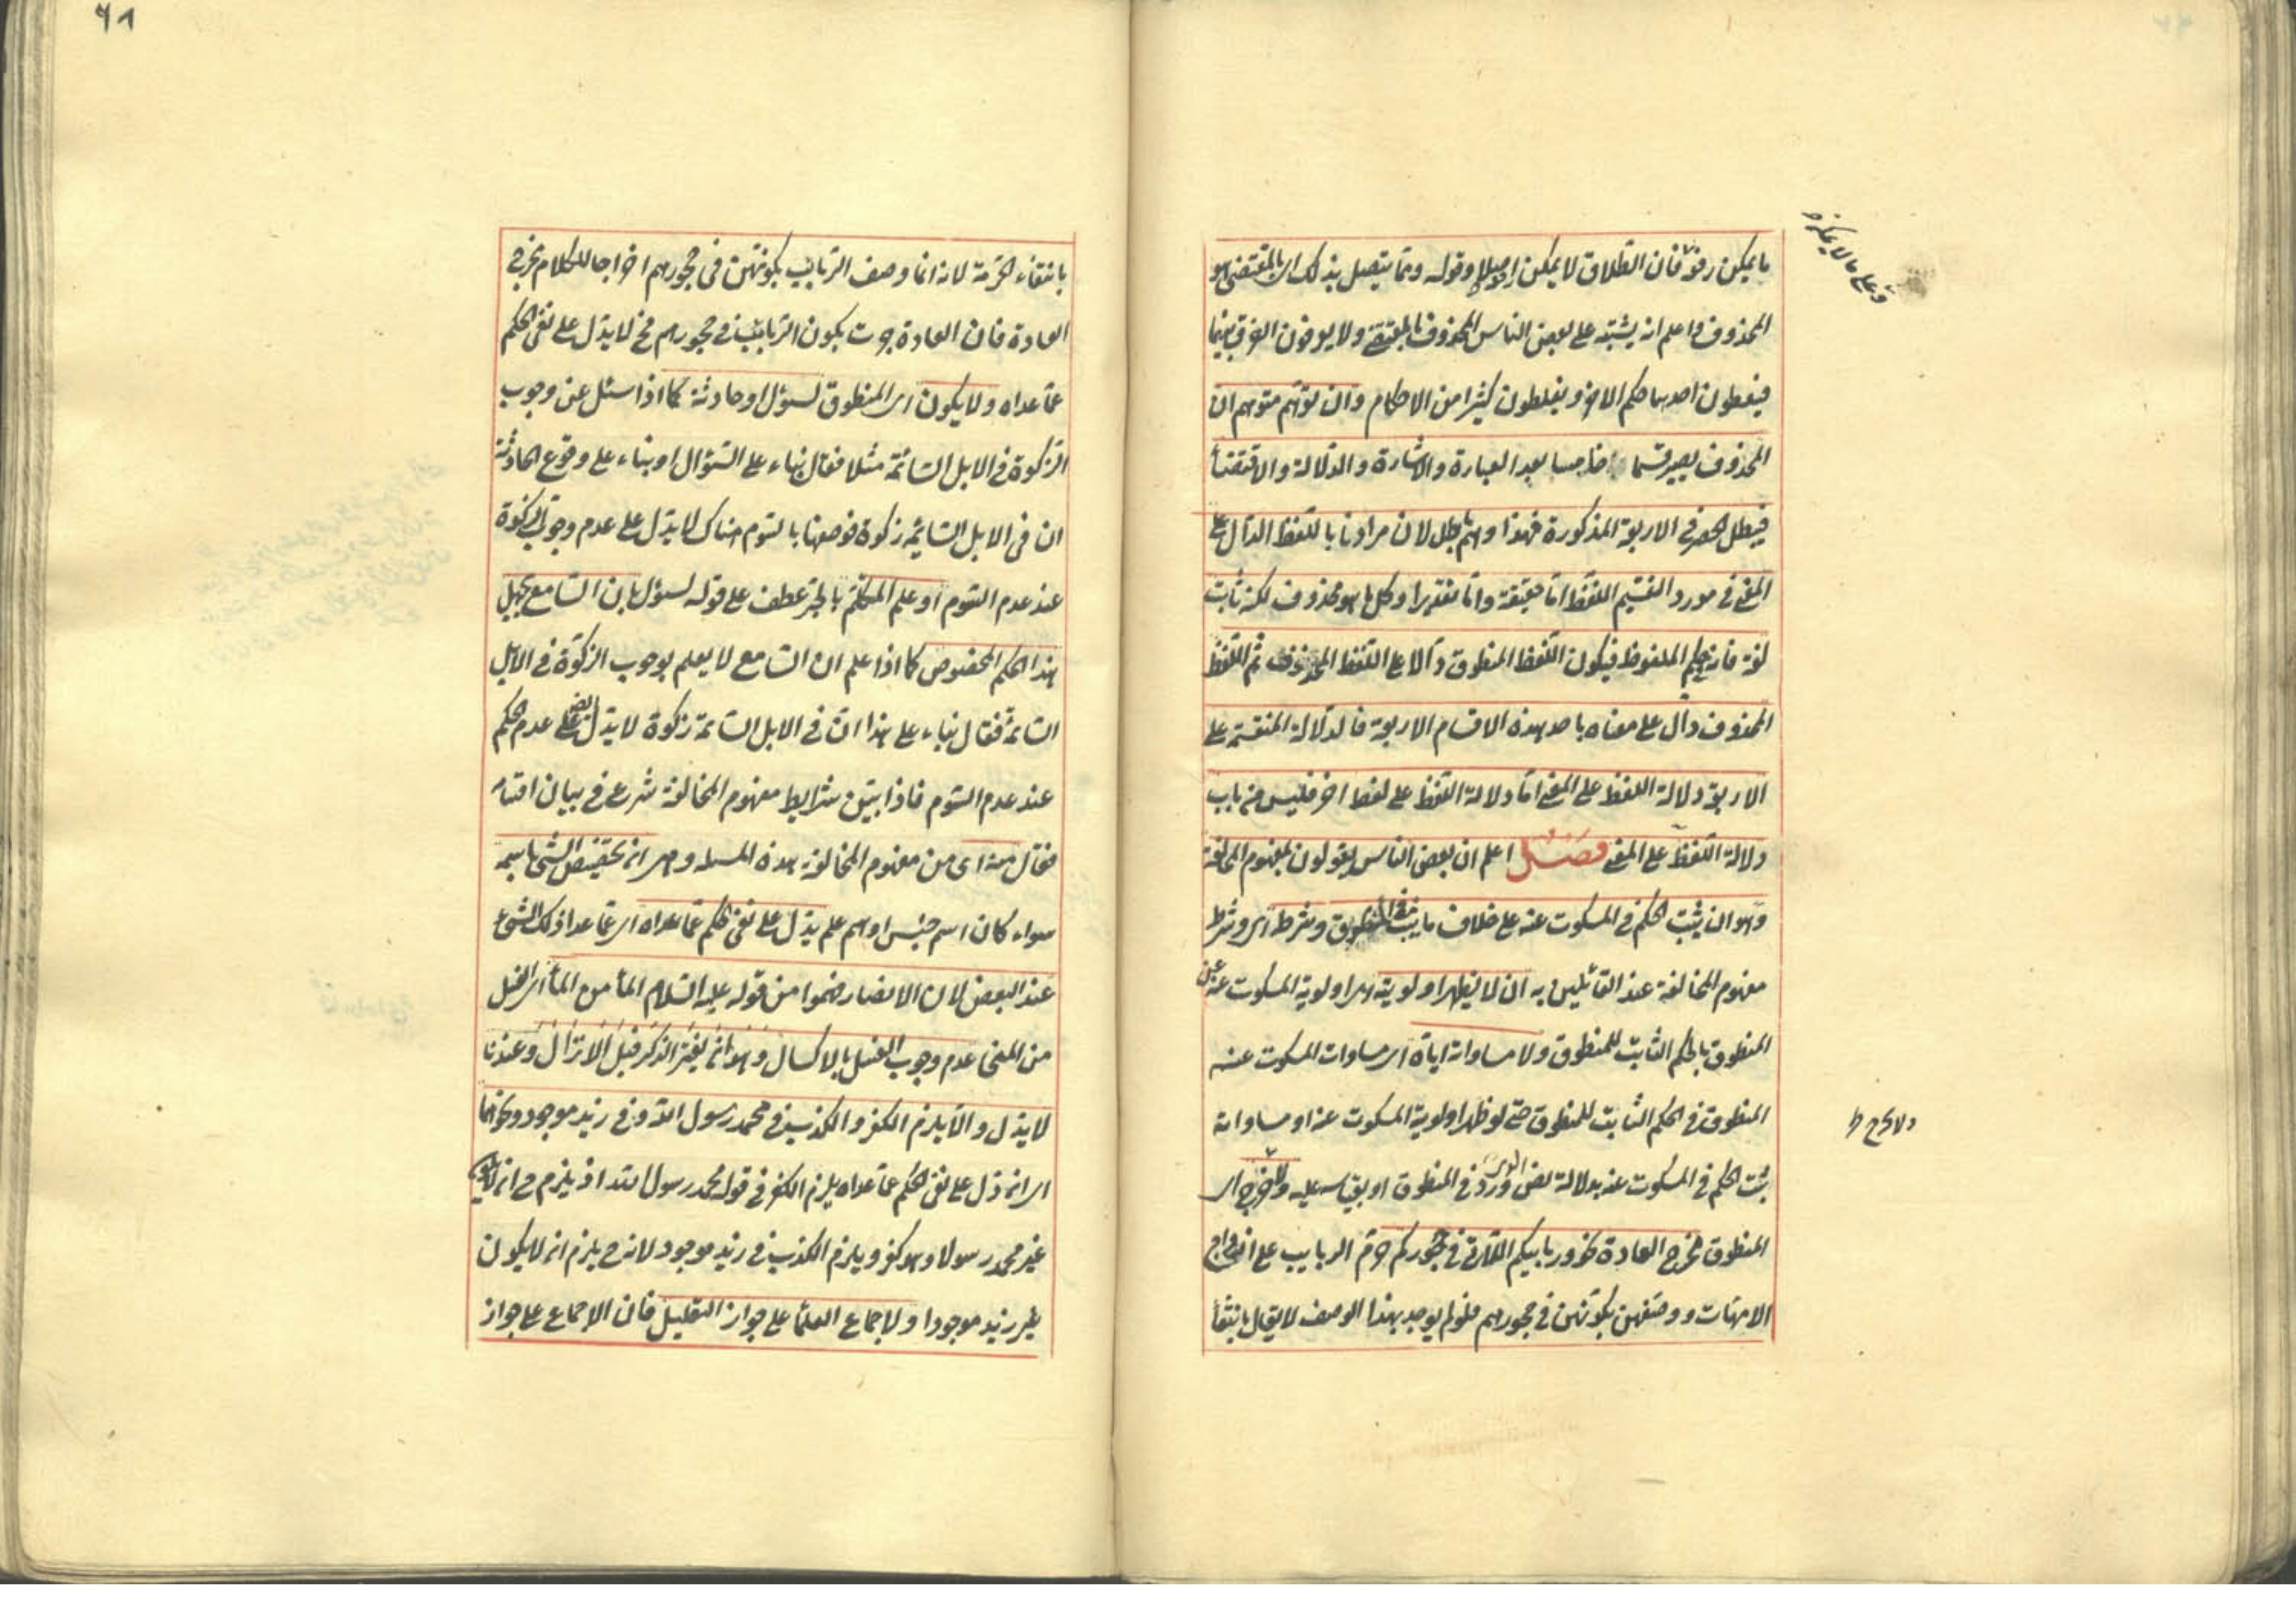 ما يمكن رفضه فان الطلاق لا يمكن رفعه اصلا وقوله ومما يتصل بذلك اى بالمقتضى هو
المحذوف واعلم انه يشتبه على بعض الناس المحذوف بالمقتضى ولا يعرفون الفرق بينهما
فيعطون احدهما حكم الاخر ويغلطون كثيرا من الاحكام وان توهم متوهم ان
المحذوف يصير قسما خامسا بعد العبارة والاشارة والدلالة والاقتضاء
فيبطل الحصر فى الاربعة المذكورة فهذا وهم باطل لان مرادنا باللفظ الدال على
المعنى فى مورد القسم اللفظ اما حقيقة واما تقديرا وكل ما هو محذوف لكنه ثابت
لغة فانه فى حكم الملفوظ فيكون اللفظ المنطوق دالا على اللفظ المحذوف ثم اللفظ
المحذوف دال على معناه باحد هذه الاقسام الاربعة فالدلالة المنقسمة على
الاربعة دلالة اللفظ على المعنى اما دلالة اللفظ على لفظ اخر فليس من باب
دلالة اللفظ على المعنى فصل اعلم ان بعض الناس يقولون بمفهوم المخالفة
وهو ان يثبت الحكم فى المسكوت عنه على خلاف ما يثبت فى المنطوق وشرطه اى وشرط
مفهوم المخالفة عند القائلين به ان لا يظهر اولويته اى اولوية المسكوت عنه من
المنطوق بالحكم الثابت للمنطوق ولا مساواته اياه اى مساوات المسكوت عنه
المنطوق فى الحكم الثابت للمنطوق حتى لو ظهر اولوية المسكوت عنه او مساواته
يثبت الحكم فى المسكوت عنه بدلالة نص ورد فى المنطوق او بقياسه عليه ولا يخرج اى
المنطوق مخرج العادة نحو وربايبكم اللاتى فى حجوركم حرم الربايب على ازواج
الامهات ووصفهن بكونهن فى حجورهم فلو لم يوجد هذا الوصف لا يقال بانتفاء
وعلى ما لا يمكن
ولا يخرج ط
٦٨
بانتفاء الحرمة لانه انما وصف الربايب بكونهن فى حجورهم اخراجا للكلام مخرج
العادة فان العادة جرت بكون الربايب فى حجورهم فح لا يدل على نفى الحكم
عما عداه ولا يكون اى المنطوق لسؤال او حادثة كما اذا سئل عن وجوب
الزكوة فى الابل السائمة مثلا فقال بناء على السؤال او بناء على وقوع الحادثة
ان فى الابل السائمة زكوة فوصفها بالسوم هناك لا يدل على عدم وجوب الزكوة
عند عدم السوم او علم المتكلم بالجر عطف على قوله لسؤال بان السامع يجهل
هذا الحكم المخصوص كما اذا علم ان السامع لا يعلم بوجوب الزكوة فى الابل
السائمة فقال بناء على هذا ان فى الابل السائمة زكوة لا يدل ايضا على عدم الحكم
عند عدم السوم فاذا بين شرايط مفهوم المخالفة شرع فى بيان اقسامه
فقال منه اى من مفهوم المخالفة هذه المسئلة وهى ان تخصيص الشئ باسمه
سواء كان اسم جنس او اسم علم يدل على نفى الحكم عما عداه اى عما عدا ذلك الشئ
عند البعض لان الانصار فهموا من قوله عليه السلام الماء من الماء اى الغسل
من المنى عدم وجوب الغسل بالاكسال وهو ان يفتر الذكر قبل الانزال وعندنا
لا يدل والا يلزم الكفر والكذب فى محمد رسول الله وفى زيد موجود ونحوهما
اى انه دل على نفى الحكم عما عداه يلزم الكفر فى قوله محمد رسول الله اذ يلزم ح ان لا يكون
غير محمد رسولا وهو كفر ويلزم الكذب فى زيد موجود لانه ح يلزم ان لا يكون
غير زيد موجودا ولاجماع العلماء على جواز التعليل فان الاجماع على جواز